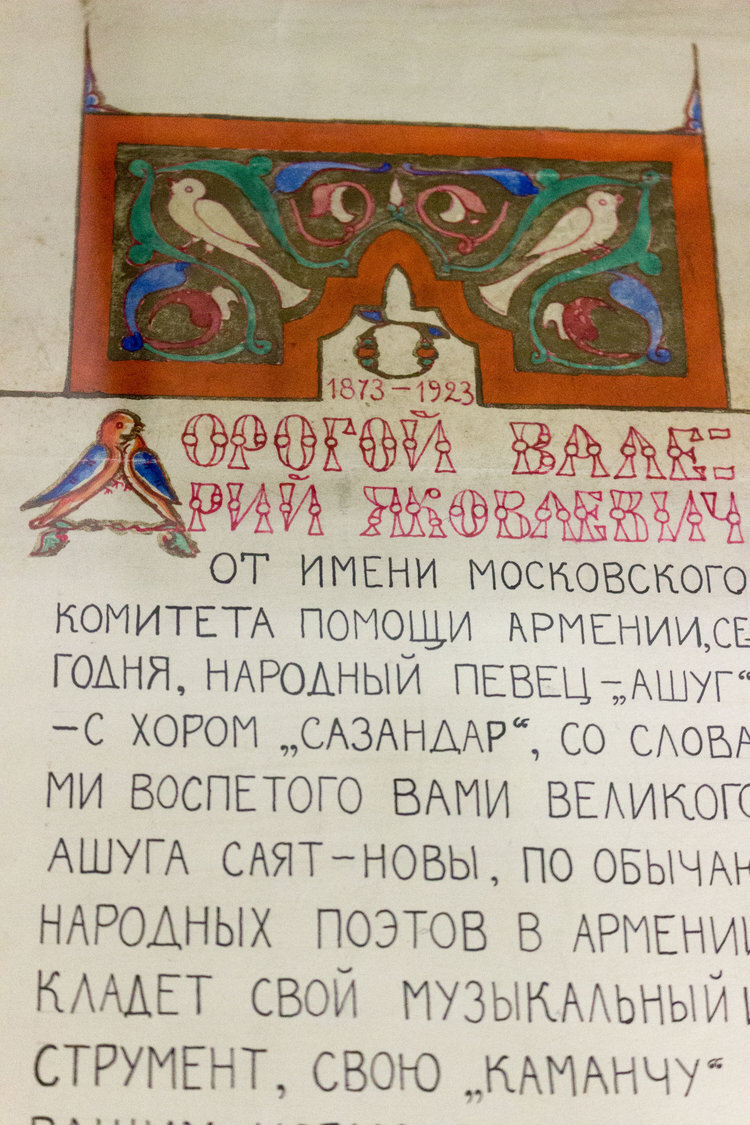 1873–1923
ДОРОГОЙ ВАЛЕ=
РИЙ ЯКОВЛЕВИЧ
ОТ ИМЕНИ МОСКОВСКОГО
КОМИТЕТА ПОМОЩИ АРМЕНИИ, СЕ
ГОДНЯ, НАРОДНЫЙ ПЕВЕЦ – „АШУГ“
– С ХОРОМ „САЗАНДАР“, СО СЛОВА
МИ ВОСПЕТОГО ВАМИ ВЕЛИКОГО
АШУГА САЯТ–НОВЫ, ПО ОБЫЧАЮ
НАРОДНЫХ ПОЭТОВ В АРМЕНИИ
КЛАДЕТ СВОЙ МУЗЫКАЛЬНЫЙ И
СТРУМЕНТ, СВОЮ „КАМАНЧУ“